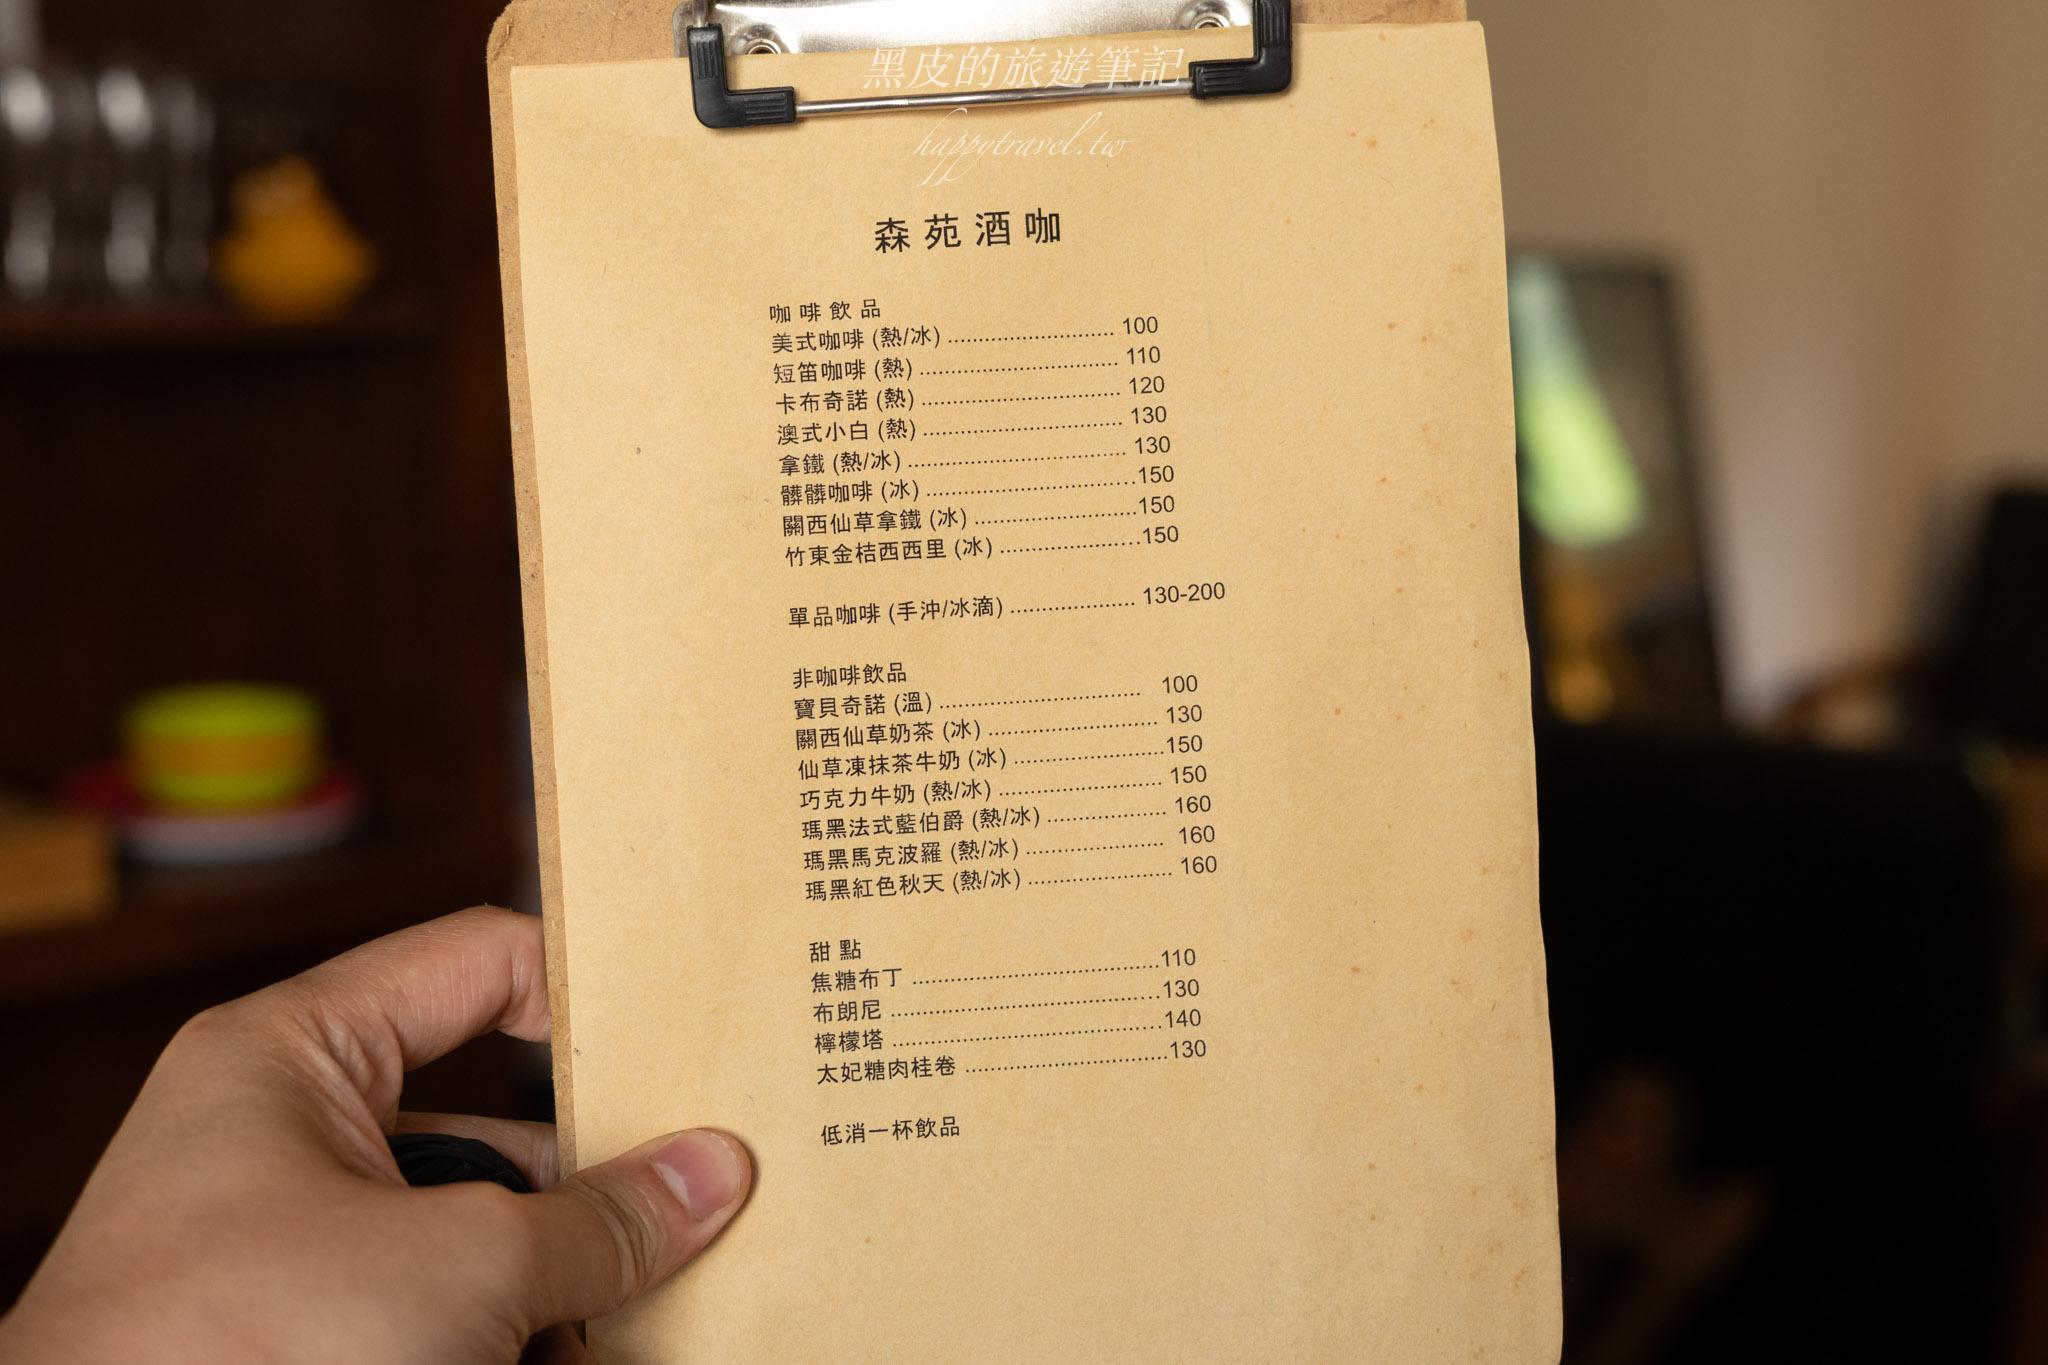 黑皮的旅遊筆記
happytravel.tw
森苑酒咖
咖啡飲品
美式咖啡 (熱/冰) ........................... 100
短笛咖啡 (熱) ................................ 110
卡布奇諾 (熱) ................................ 120
澳式小白 (熱) ................................ 130
拿鐵 (熱/冰) ................................... 130
髒髒咖啡 (冰) ..................................150
關西仙草拿鐵 (冰) ..........................150
竹東金桔西西里 (冰) .......................150
單品咖啡 (手沖/冰滴) .................... 130-200
非咖啡飲品
寶貝奇諾 (溫) ................................ 100
關西仙草奶茶 (冰) ........................... 130
仙草凍抹茶牛奶 (冰) ........................150
巧克力牛奶 (熱/冰) .......................... 150
瑪黑法式藍伯爵 (熱/冰) ................... 160
瑪黑馬克波羅 (熱/冰) ...................... 160
瑪黑紅色秋天 (熱/冰) ....................... 160
甜點
焦糖布丁 ........................................110
布朗尼 ...........................................130
檸檬塔 ...........................................140
太妃糖肉桂卷 ................................130
低消一杯飲品